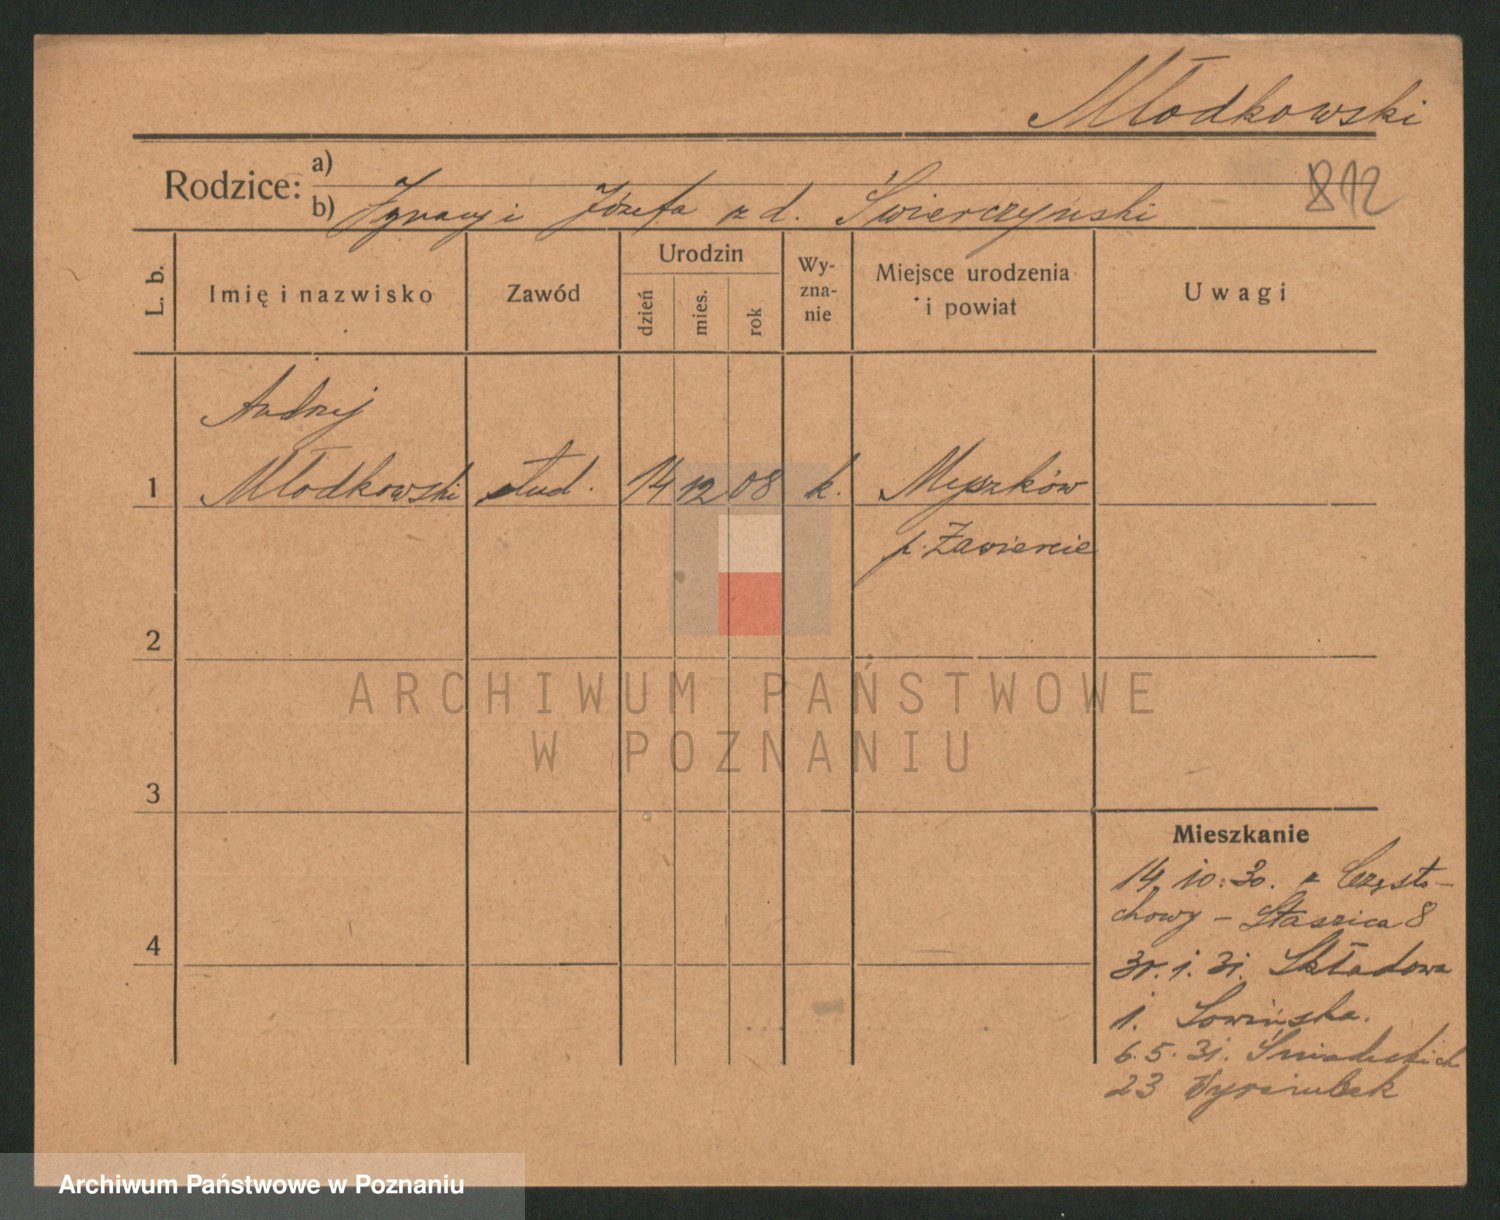 Młodkowski
Rodzice: a)
b) Ignacy i Józefa z d. Świerczyński
812
L. b.
Imię i nazwisko
Zawód
Urodzin
dzień
mies.
rok
Wy-
zna-
nie
Miejsce urodzenia
i powiat
Uwagi
Andrzej
1 Młodkowski stud. 14 12 08 k. Myszków
p. Zawiercie
2
3
4
ARCHIWUM PAŃSTWOWE
W POZNANIU
Mieszkanie
14.10.30. z Często-
chowy - Staszica 8
1.31. Składowa
1. Sowińska.
6.5.31. Śniadeckich
23
Archiwum Państwowe w Poznaniu